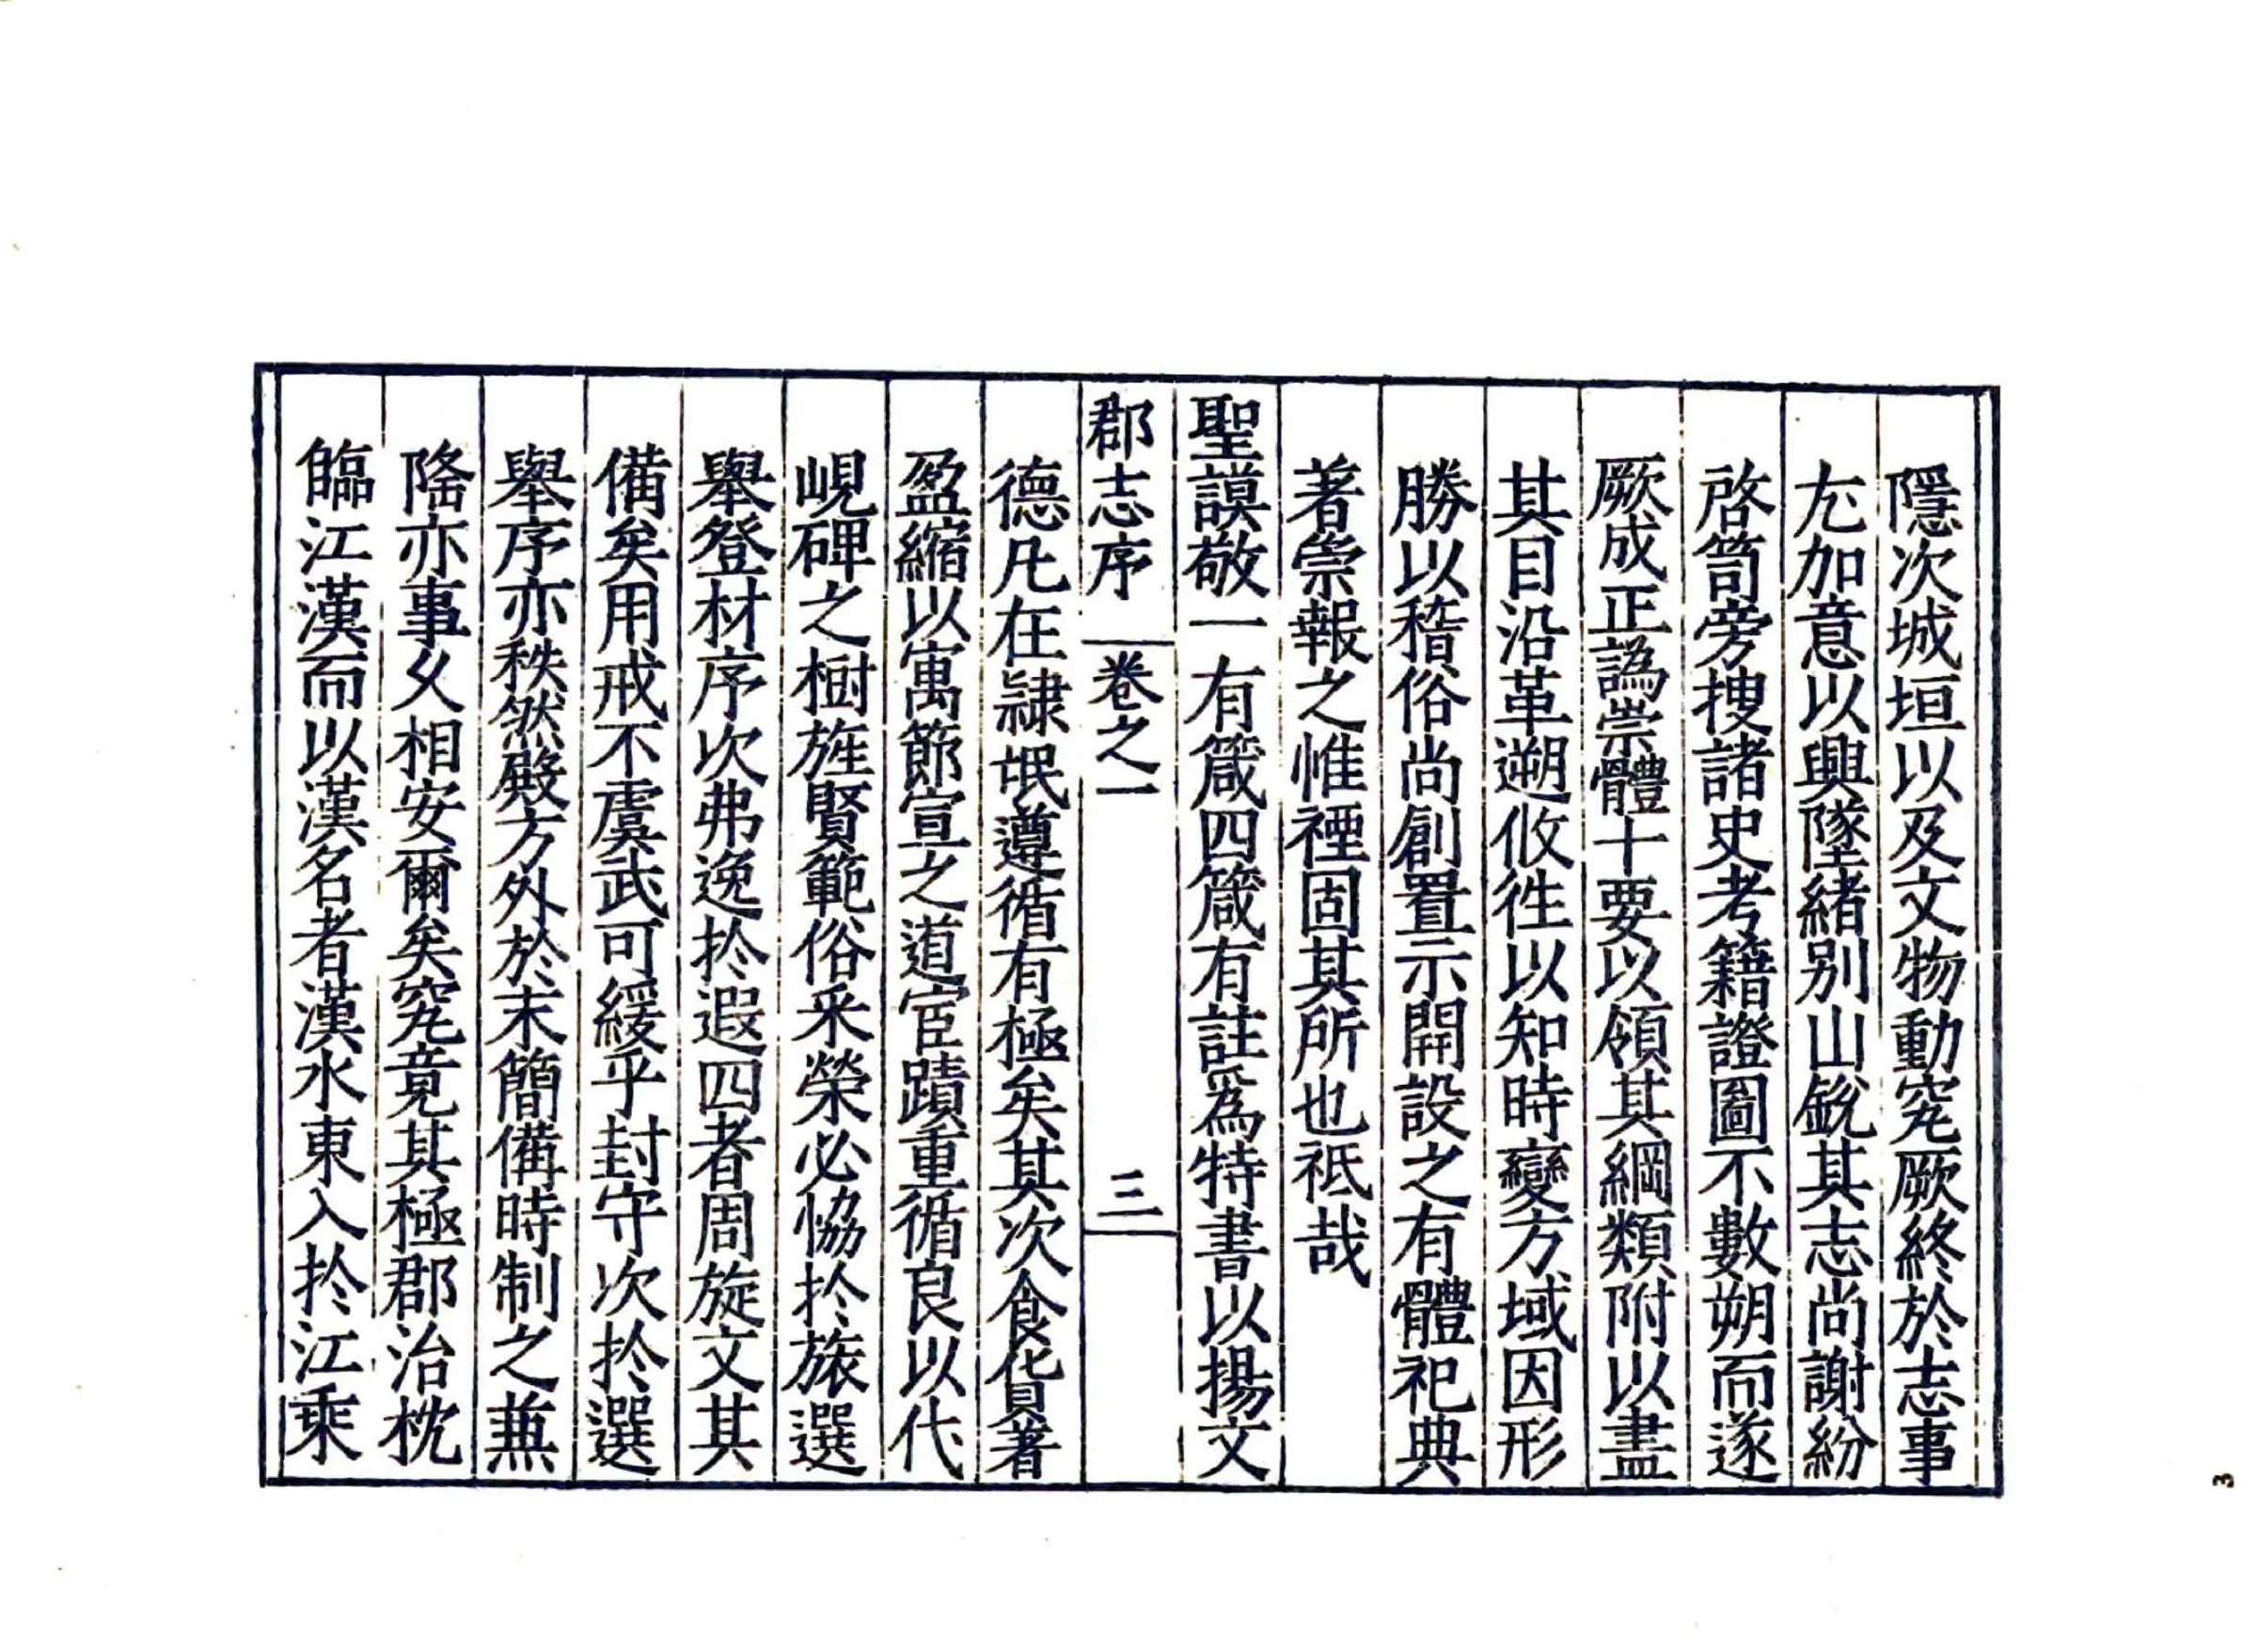 隱次城垣以及文物動究厥終於志事
尢加意以興墜緒别山銳其志尚謝紛
啓笥旁搜諸史考籍證圖不數朔而遂
厥成正譌崇體十要以領其綱類附以盡
其目沿革遡攸徃以知時變方域因形
勝以稽俗尚創置示開設之有體祀典
著崇報之惟禋固其所也祗哉
聖謨敬一有箴四箴有註爲特書以揚文
郡志序 卷之一 三
德凡在隷氓遵循有極矣其次食貨著
盈縮以寓節宣之道宦蹟重循良以代
峴碑之樹旌賢範俗釆榮必恊扵旅選
舉登材序次弗逸扵遐四者周旋文其
備矣用戒不虞武可緩乎封守次扵選
舉序亦秩然殿方外於末簡備時制之兼
隆亦事乂相安爾矣究竟其極郡治枕
臨江漢而以漢名者漢水東入扵江乘
3